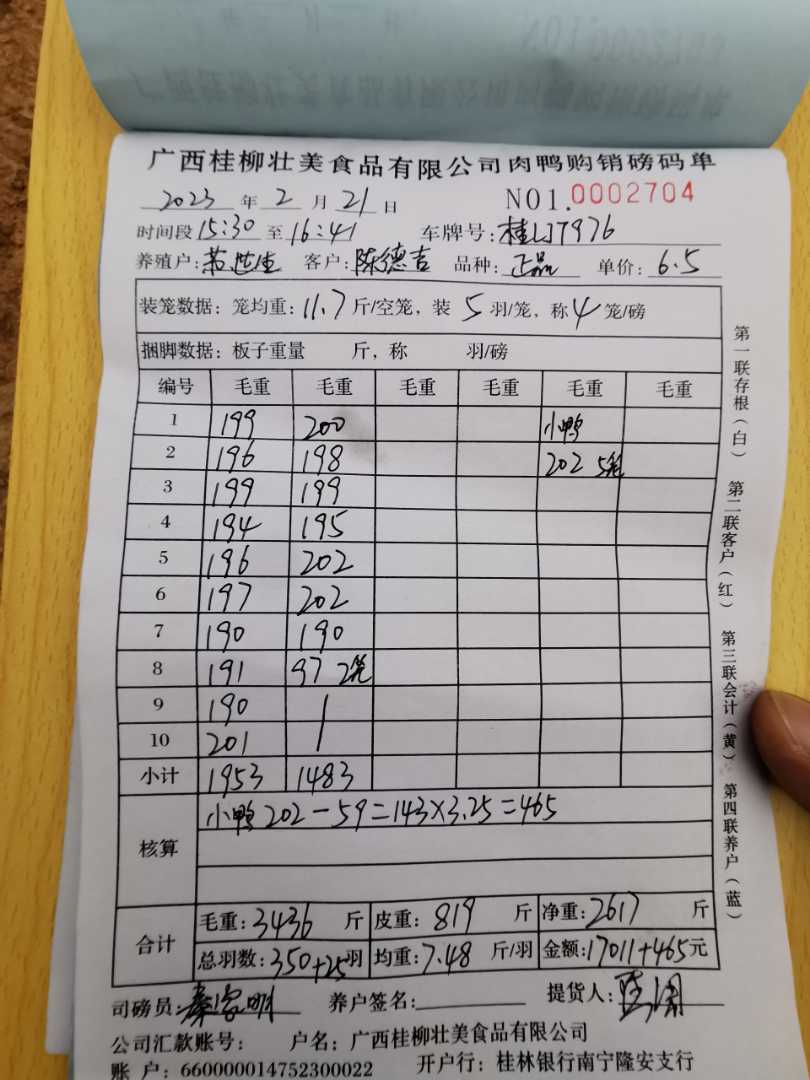 广西桂柳壮美食品有限公司肉鸭购销磅码单
2023 年 2 月 21 日 NO1.0002704
时间段 15:30 至 16:41 车牌号:桂J T976
养殖户: 客户:陈德吉 品种:正品 单价:6.5
装笼数据:笼均重:11.7斤/空笼,装 5 羽/笼,称 4 笼/磅
捆脚数据:板子重量 斤,称 羽/磅
编号 毛重 毛重 毛重 毛重 毛重 毛重
1 199 200 小鸭
2 196 198 202 5笼
3 199 199
4 194 195
5 196 202
6 197 202
7 190 190
8 191 97 2笼
9 190
10 201
小计 1953 1483
核算 小鸭 202-59=143×3.25=465
合计 毛重:3436 斤 皮重:819 斤 净重:2617 斤
总羽数:350+25羽 均重:7.48 斤/羽 金额:17011+465元
司磅员: 养户签名: 提货人:
公司汇款账号: 户名:广西桂柳壮美食品有限公司
账 户:660000014752300022 开户行:桂林银行南宁隆安支行
第一联存根(白) 第二联客户(红) 第三联会计(黄) 第四联养户(蓝)